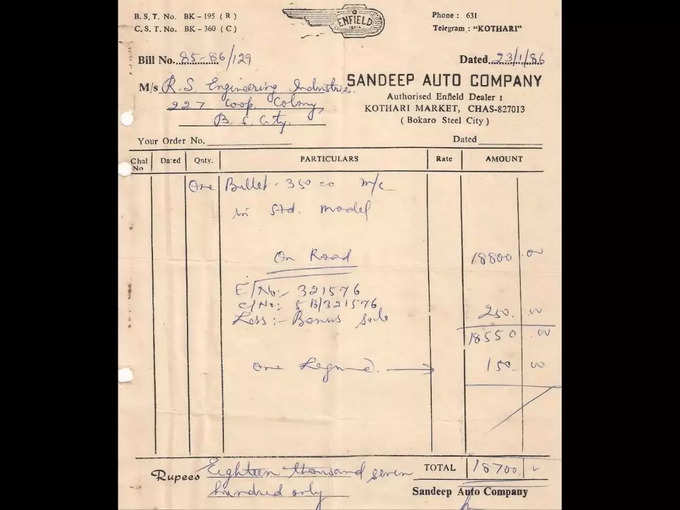 B. S. T. No. BK - 195 ( R )
C. S. T. No. BK - 360 ( C )
ENFIELD
Phone : 631
Telegram : "KOTHARI"
Bill No. 85-86/129
Dated 23/1/86
M/s R.S. Engineering Industries.
227 Coop. Colony,
B. S. City.
SANDEEP AUTO COMPANY
Authorised Enfield Dealer :
KOTHARI MARKET, CHAS-827013
( Bokaro Steel City )
Your Order No.
Dated
Chal No Dated Qnty. PARTICULARS Rate AMOUNT
One Bullet - 350 cc m/c
in Std. model
On Road 18800.00
E/No:- 321576
C/No:- 5 B/321576
Less:- Bonus 250.00
18550.00
One 150.00
TOTAL 18700
Rupees Eighteen thousand seven
hundred only
Sandeep Auto Company